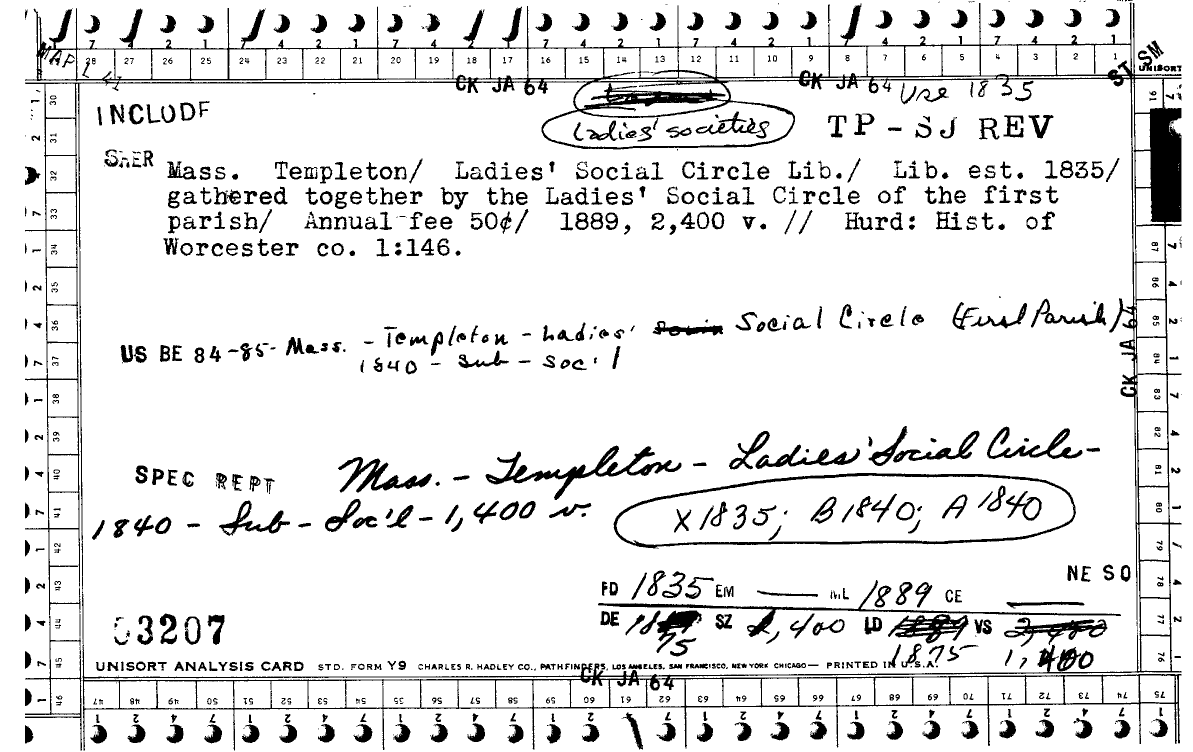 7 4 2 1 7 4 2 1 7 4 2 1 7 4 2 1 7 4 2 1 7 4 2 1 7 4 2 1
28 27 26 25 24 23 22 21 20 19 18 17 16 15 14 13 12 11 10 9 8 7 6 5 4 3 2 1
MAP
ST SM
UNISORT
CK JA 64
CK JA 64 Use 1835
INCLUDE
Ladies' societies
TP - SJ REV
SHER
Mass. Templeton/ Ladies' Social Circle Lib./ Lib. est. 1835/
gathered together by the Ladies' Social Circle of the first
parish/ Annual fee 50¢/ 1889, 2,400 v. // Hurd: Hist. of
Worcester co. 1:146.
US BE 84-85- Mass. - Templeton - Ladies' Social Circle (First Parish)
1840 - Sub - Soc'l
CK JA 64
SPEC REPT Mass. - Templeton - Ladies' Social Circle -
1840 - Sub - Soc'l - 1,400 v.
X 1835; B 1840; A 1840
NE SO
FD 1835 EM — ML 1889 CE —
DE 75 SZ 2,400 LD 1889 VS 2,400
1875 1,400
03207
UNISORT ANALYSIS CARD STD. FORM Y9 CHARLES R. HADLEY CO., PATHFINDERS, LOS ANGELES, SAN FRANCISCO, NEW YORK CHICAGO — PRINTED IN U.S.A.
CK JA 64
47 48 49 50 51 52 53 54 55 56 57 58 59 60 61 62 63 64 65 66 67 68 69 70 71 72 73 74 75